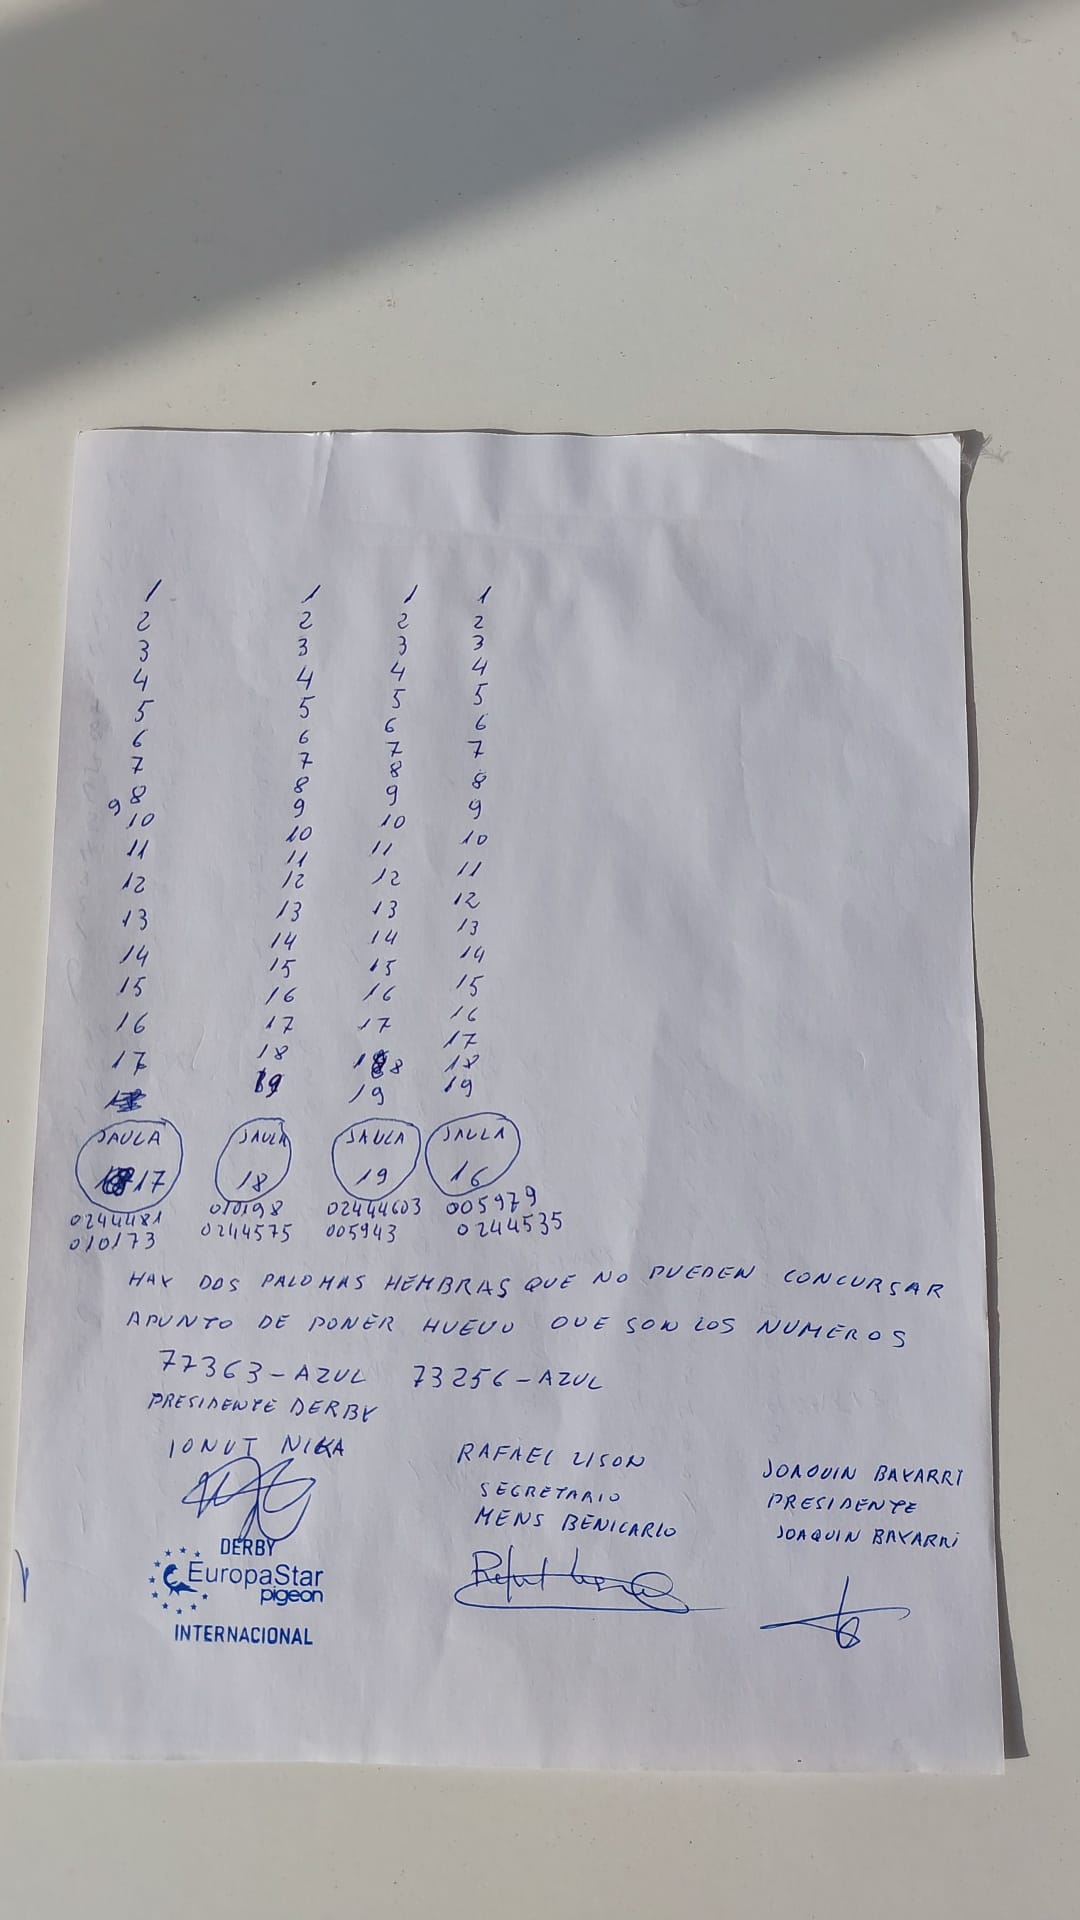 1 1 1 1
2 2 2 2
3 3 3 3
4 4 4 4
5 5 5 5
6 6 6 6
7 7 7 7
8 8 8 8
9 9 9 9
10 10 10 10
11 11 11 11
12 12 12 12
13 13 13 13
14 14 14 14
15 15 15 15
16 16 16 16
17 17 17 17
18 18 18
19 19 19
JAULA JAULA JAULA JAULA
17 18 19 16
0244481 010198 02444603 005979
010173 0244575 005943 0244535
HAY DOS PALOMAS HEMBRAS QUE NO PUEDEN CONCURSAR
APUNTO DE PONER HUEVO QUE SON LOS NUMEROS
77363-AZUL 73256-AZUL
PRESIDENTE DERBY
IONUT NIKA
RAFAEL LISON
SECRETARIO
MENS BENICARLO
JOAQUIN BAYARRI
PRESIDENTE
JOAQUIN BAYARRi
DERBY
EuropaStar
pigeon
INTERNACIONAL